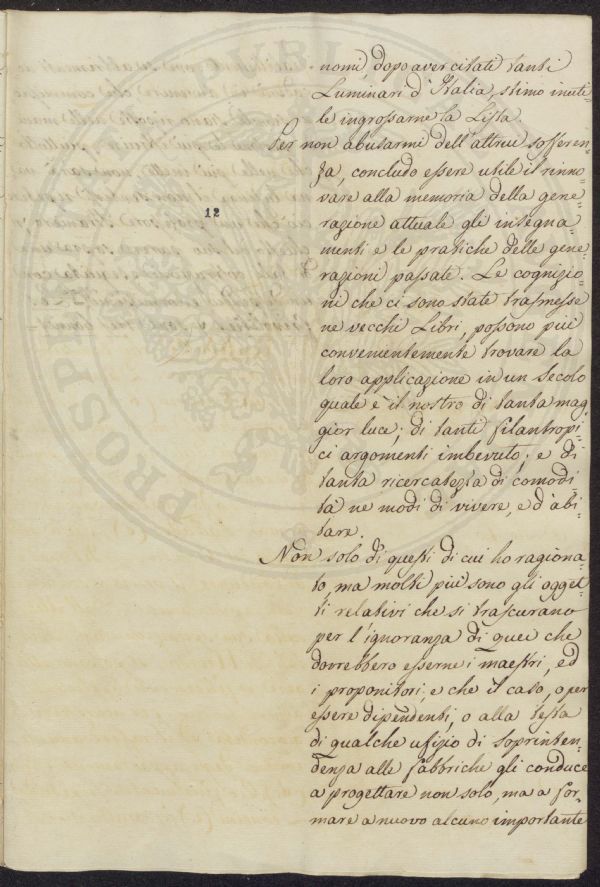 nomi, dopo aver citate tanti
Luminari d'Italia, stimo inuti-
le ingrossarne la Lista.
Per non abusarmi dell'altrui sofferen-
za, concludo essere utile il rinno-
vare alla memoria della gene-
razione attuale gli insegna-
menti e le pratiche delle gene-
razioni passate. Le cognizio-
ni che ci sono state trasmesse
ne vecchi Libri, possono più
convenientemente trovare la
loro applicazione in un Secolo
quale è il nostro di tanta mag-
gior luce; di tanti filantropi-
ci argomenti imbevuto; e di
tanta ricercatezza di comodi-
tà ne modi di vivere, e d'abi-
tare.
Non solo di questi di cui ho ragiona-
to, ma molti più sono gli ogget-
ti relativi che si trascurano
per l'ignoranza di quei che
dovrebbero esserne i maestri, ed
i proponitori, e che il caso, o per
essere dipendenti, o alla testa
di qualche ufizio di soprinten-
denza alle fabbriche gli conduce
a progettare non solo, ma a for-
mare a nuovo alcuno importante
12